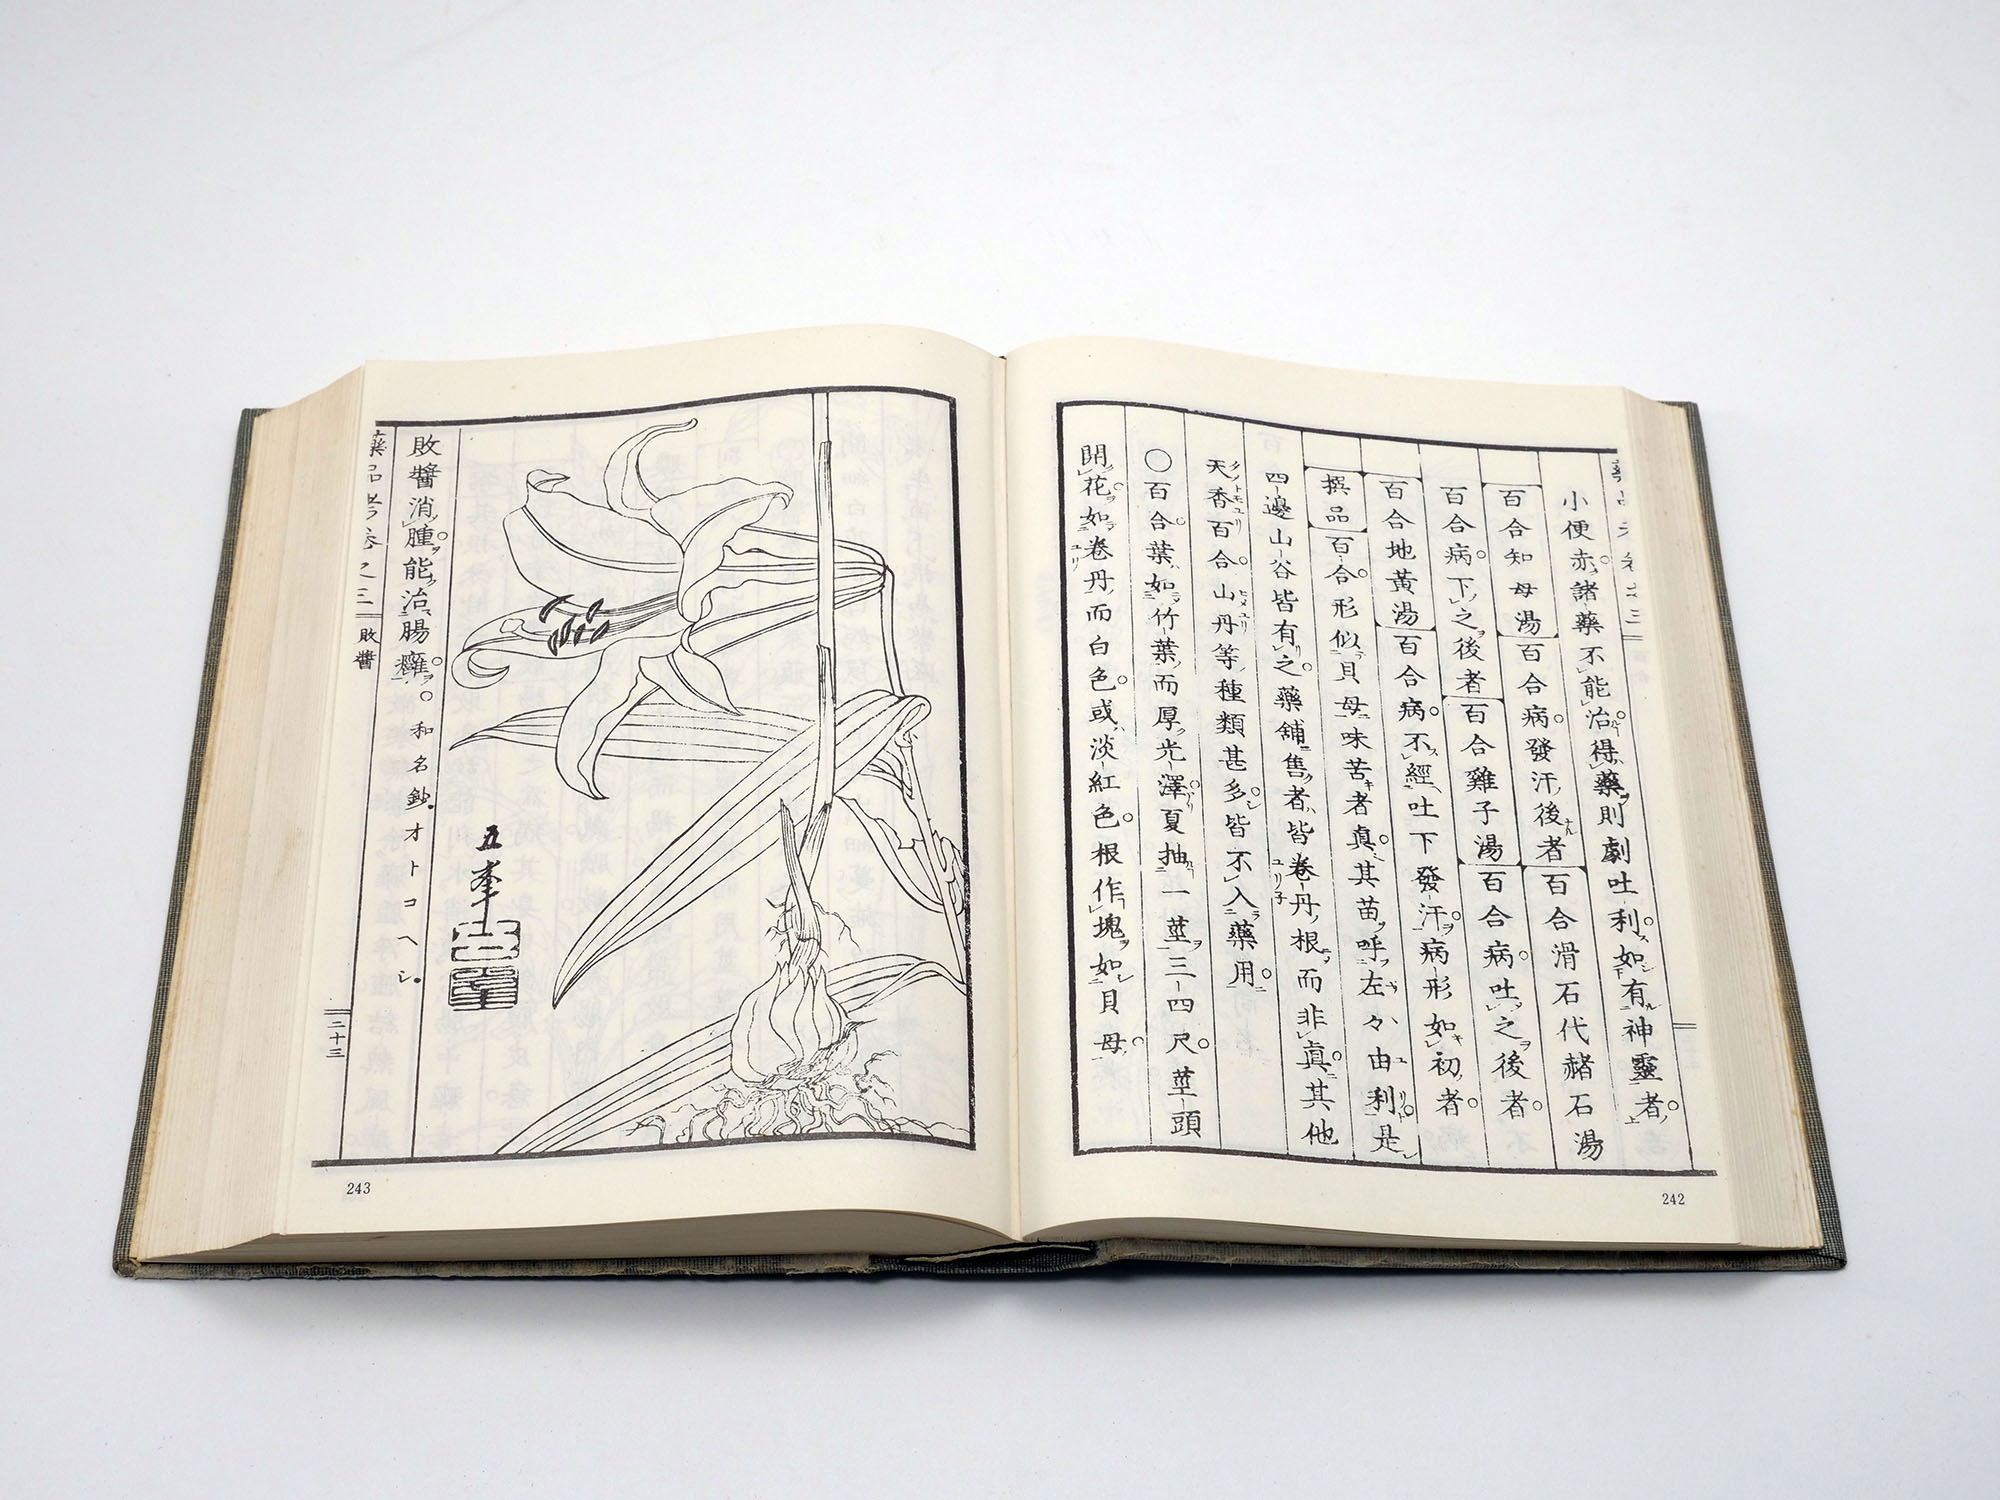 小便赤諸藥不能治得藥則劇吐利如有神靈者
百合知母湯 百合病發汗後者 百合滑石代赭石湯
百合病下之後者 百合雞子湯 百合病吐之後者
百合地黃湯 百合病不經吐下發汗病形如初者
撰品 百合形似貝母味苦者真其苗呼左々由利是
四邊山谷皆有之藥鋪售者皆卷丹根而非真其他
天香百合山丹等種類甚多皆不入藥用
○百合葉如竹葉而厚光澤夏抽一莖三四尺莖頭
開花如卷丹而白色或淡紅色根作塊如貝母
242
五峯
敗醬消腫能治腸癰○和名鈔オトコヘシ
藥品考卷之三 敗醬 二十三
243